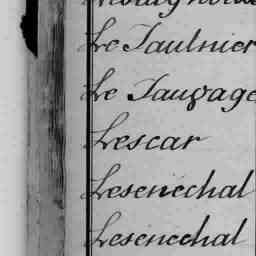 Le Taulnier
Le Tauzage
Lescar
Lesenechal
Lesenechal